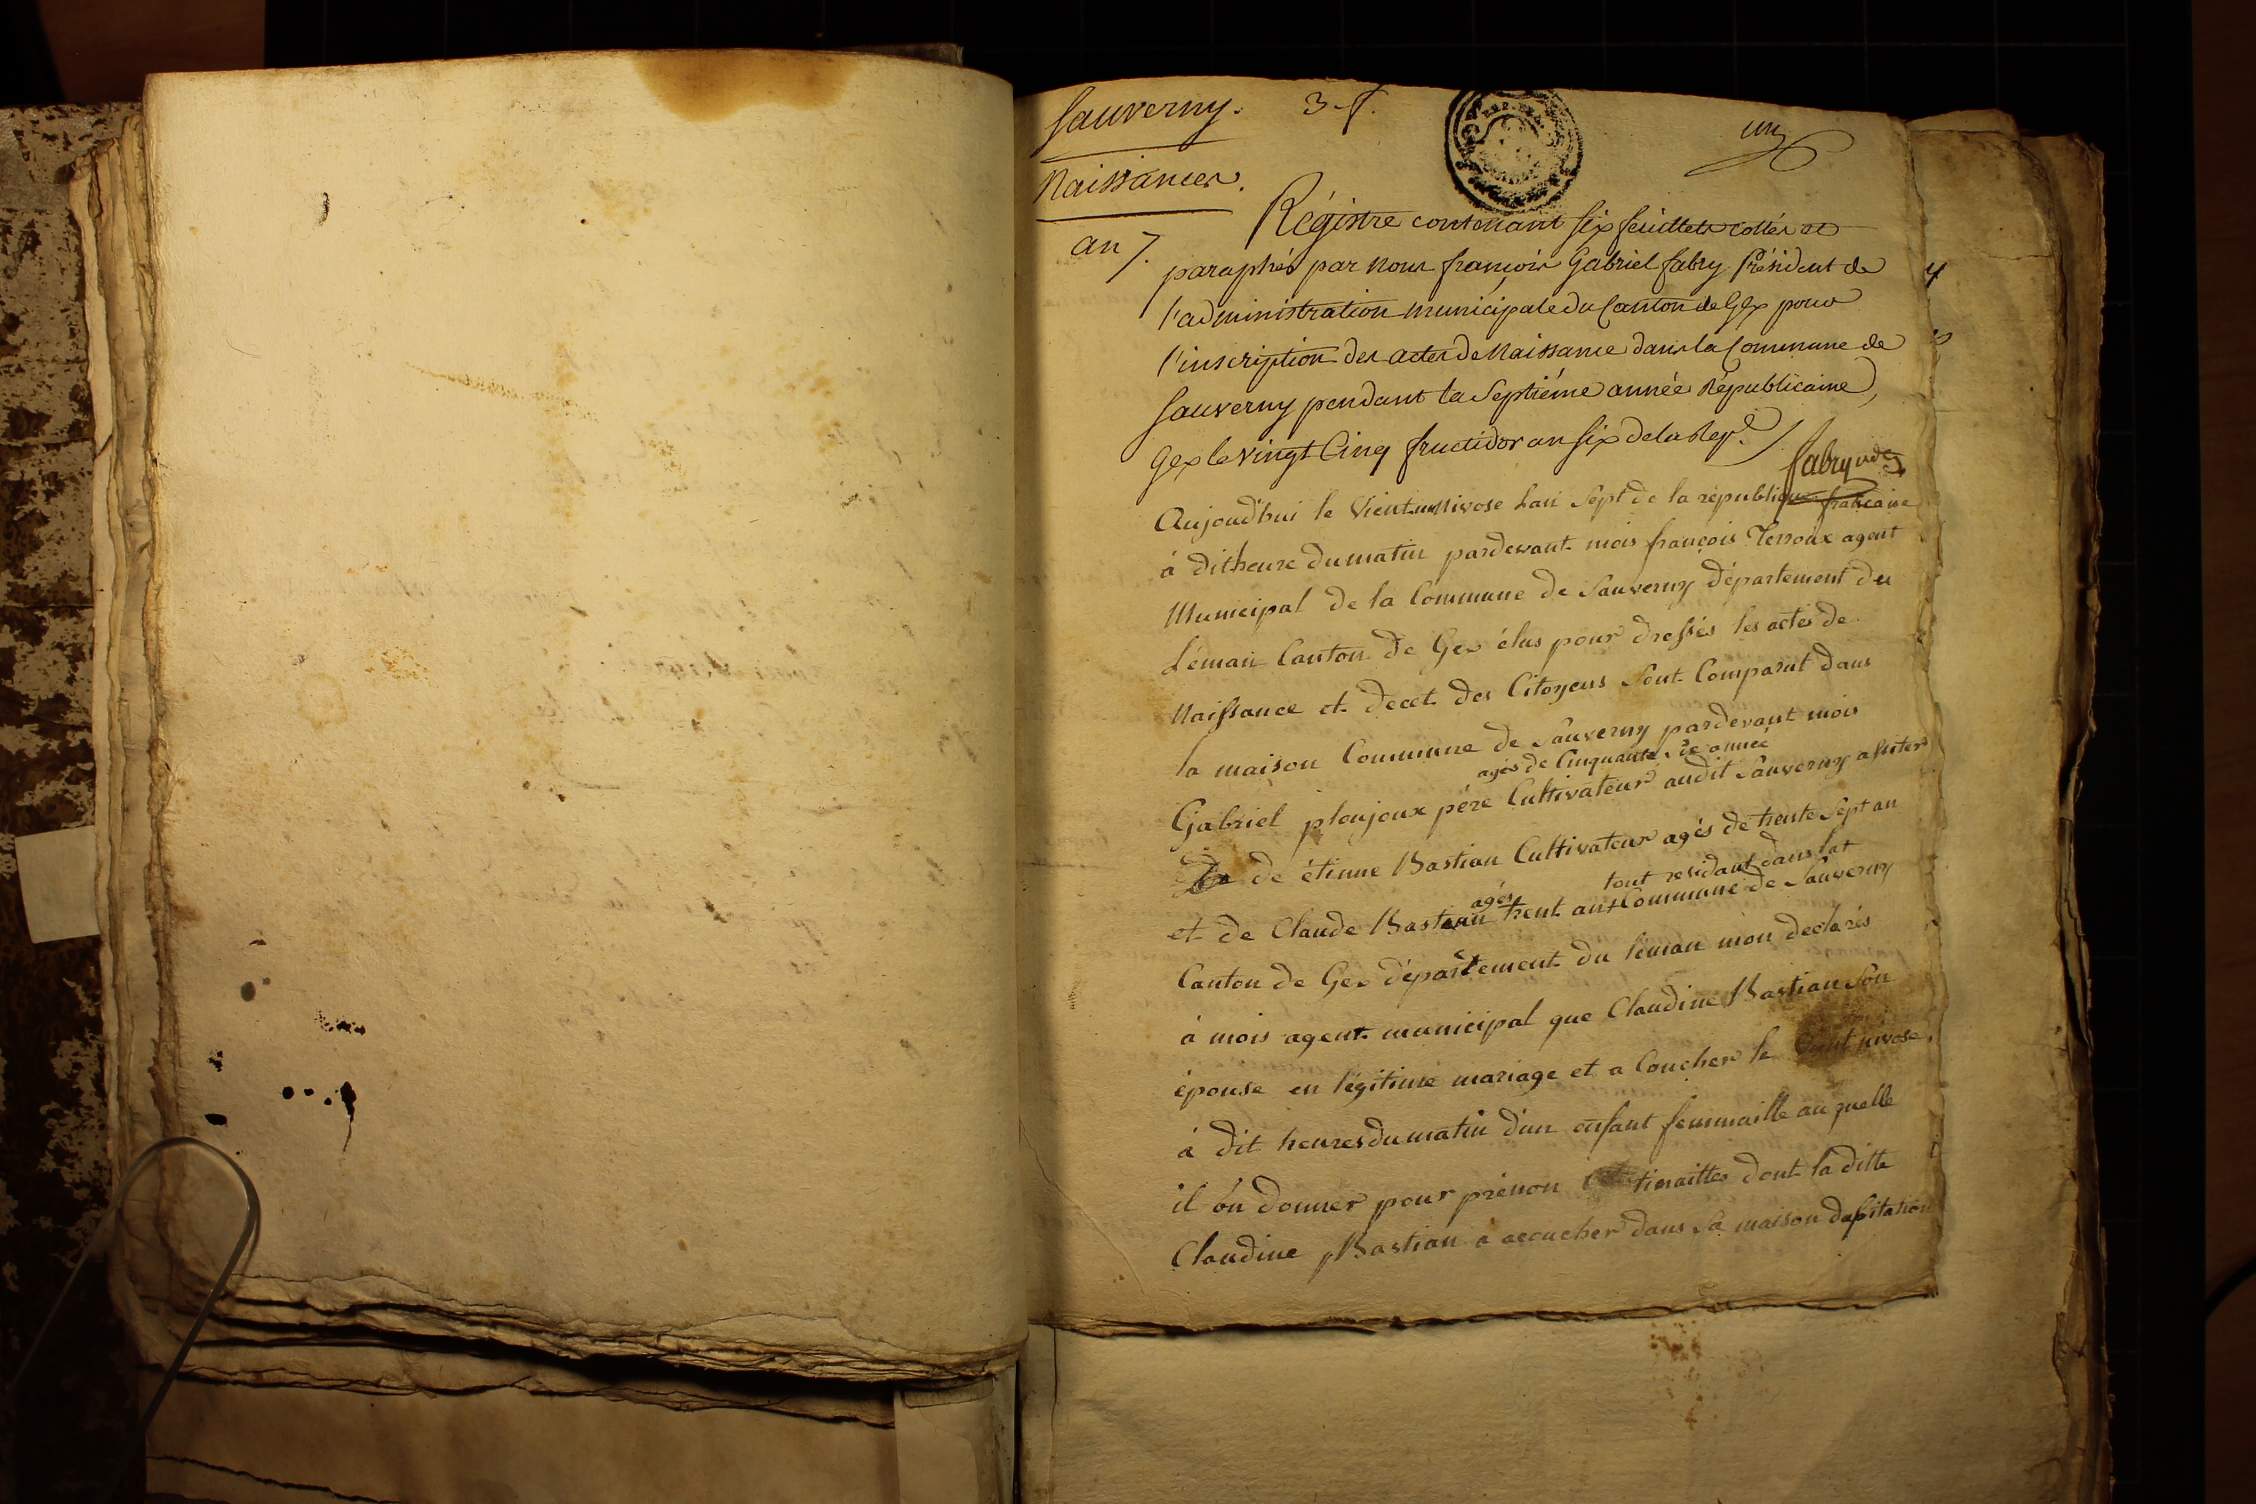 Sauverny. 3. f.
un
Naissances.
an 7.
Régistre contenant six feuillets cottés et
paraphés par nous françois Gabriel fabry Président de
l'administration municipale du Canton de Gex pour
l'inscription des actes de Naissance dans la Commune de
Sauverny pendant la Septiéme année Républicaine,
Gex le vingt Cinq fructidor an six de la Rep.e
fabry
Aujoud'hui le Vient un Nivose Lan Sept de la republique francaine
à dit heure du matin pardevant mois françois Terroux agent
Municipal de la Commune de Sauverny département du
Léman Canton de Gex élus pour dressés les actes de
Naissance et decet des Citoyens Sont Comparut dans
la maison Commune de Sauverny pardevant mois
agés de Cinquante de année
Gabriel ploujoux pére Cultivateur audit Sauverny asister
de étinne Bastian Cultivateur agés de trente Sept an
tout residant dans lat
agés
et de Claude Bastian trent ans Commune de Sauverny
Canton de Gex département du léman mon declarés
à mois agent municipal que Claudine Bastian Son
épouse en légitime mariage et a Coucher le nivose
à dit heures du matin d'un enfant femmaille au quelle
il on donner pour prénon dont la ditte
Claudine Bastian a acoucher dans Sa maison dabitation